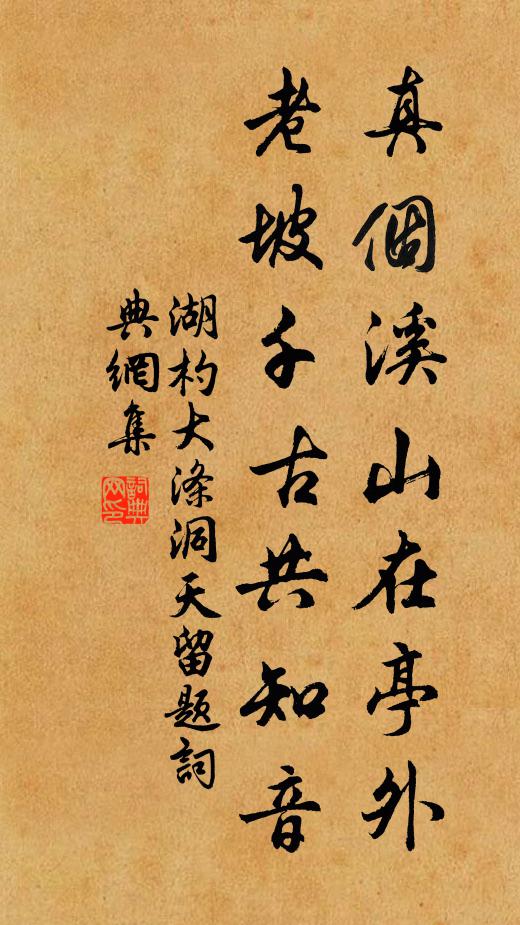 真個溪山在亭外
老坡千古共知音
湖杓大滌洞天留題詞
典網集
詞典網印